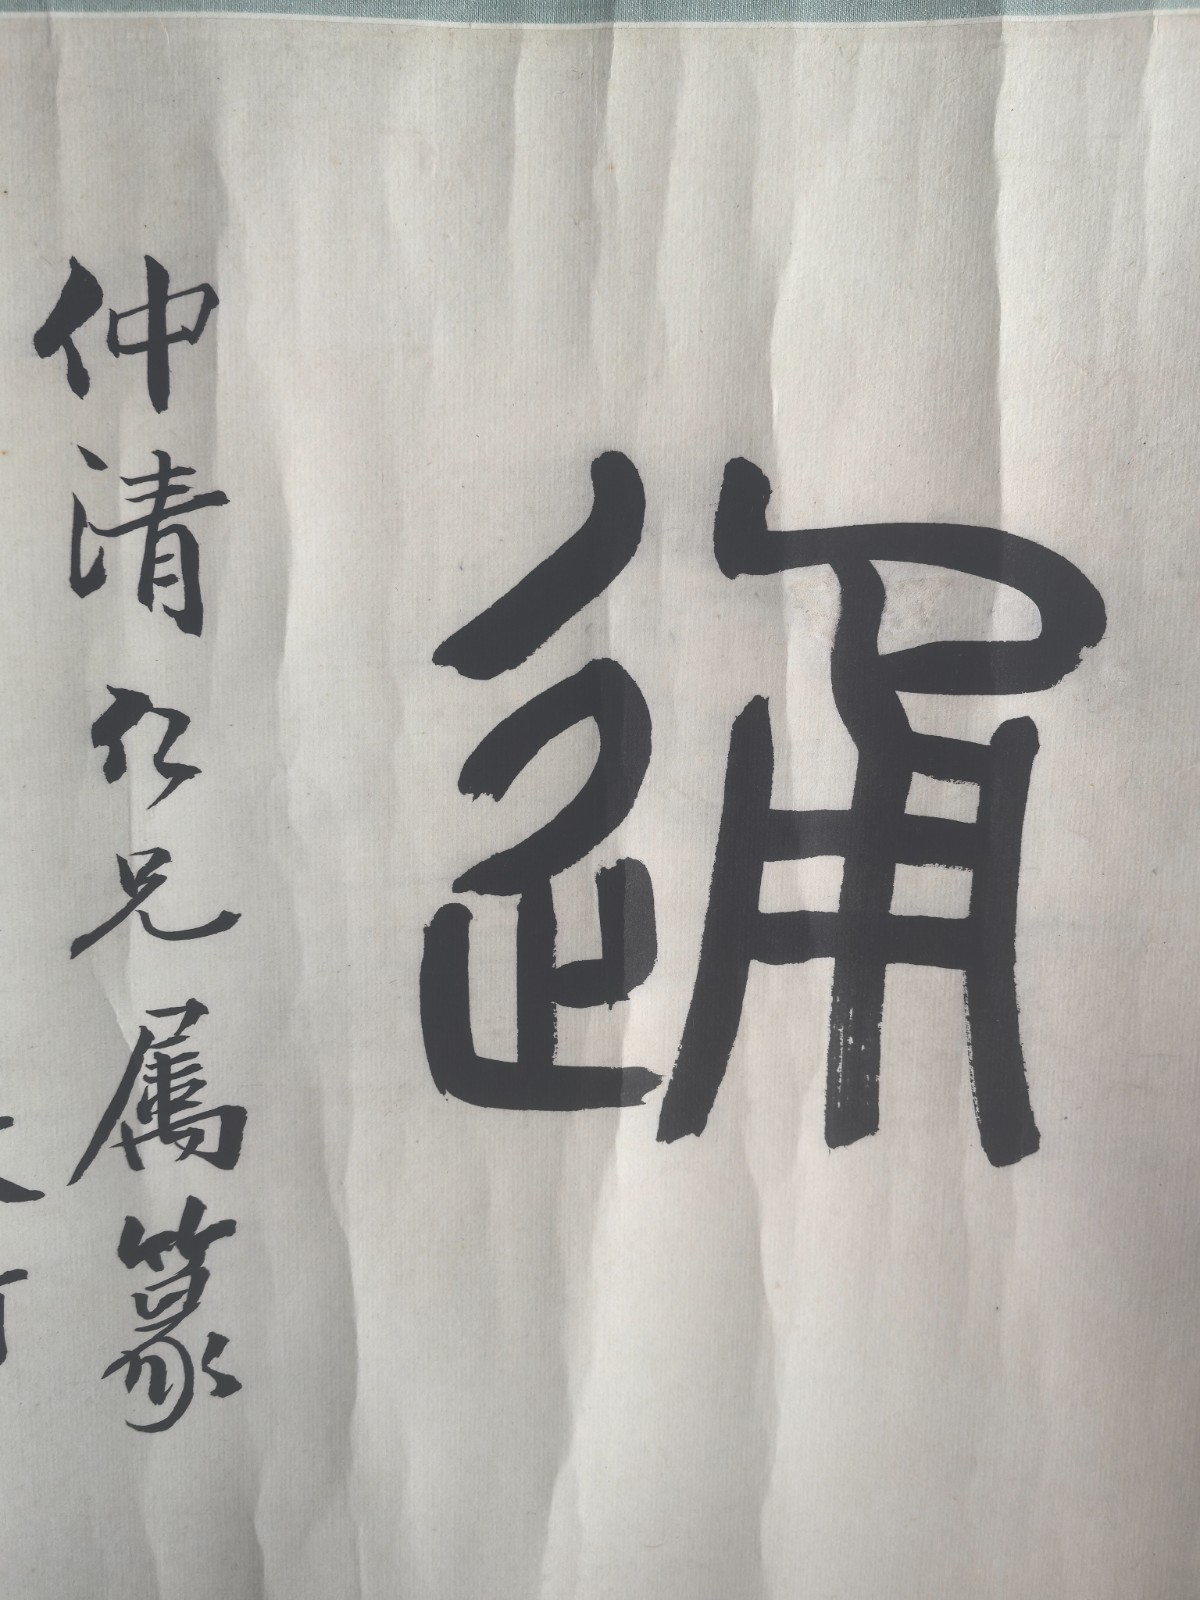 通
仲清仁兄属篆